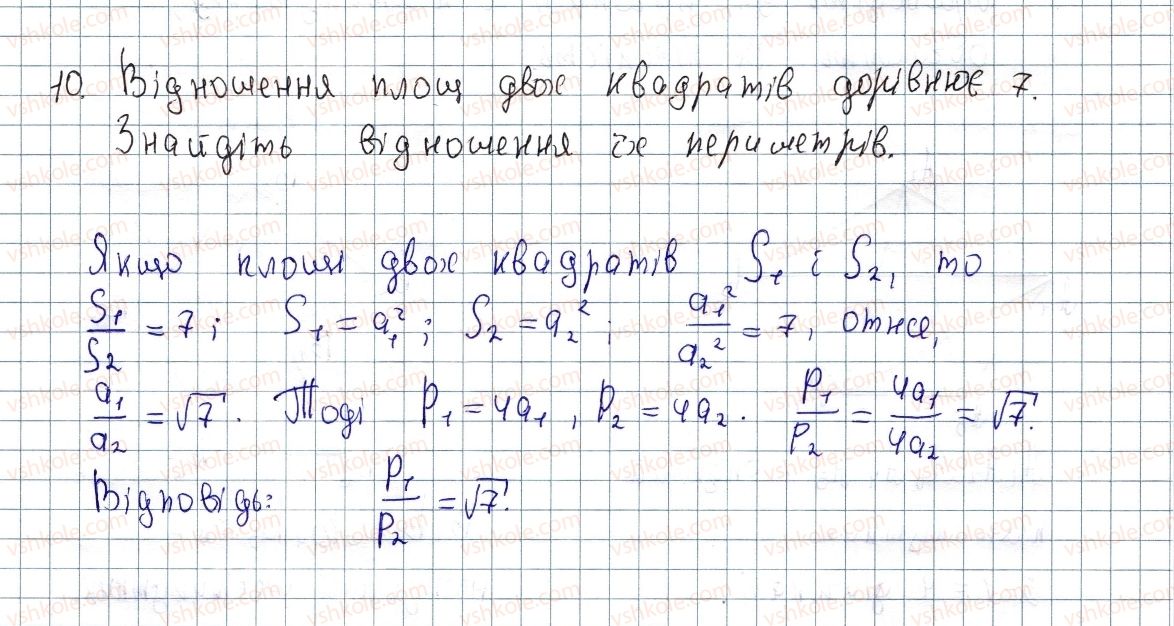 10. Відношення площ двох квадратів дорівнює 7.
Знайдіть відношення їх периметрів.
Якщо площі двох квадратів S₁ і S₂, то
S₁/S₂ = 7; S₁ = a₁²; S₂ = a₂²; a₁²/a₂² = 7, отже,
a₁/a₂ = √7. Тоді P₁ = 4a₁, P₂ = 4a₂. P₁/P₂ = 4a₁/4a₂ = √7.
Відповідь: P₁/P₂ = √7.